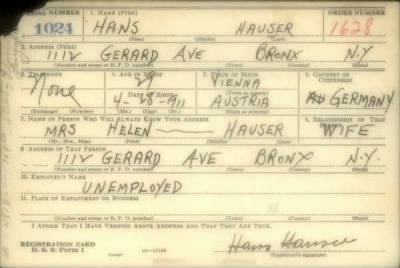 SERIAL NUMBER 1. NAME (Print) ORDER NUMBER
1024 HANS HAUSER 1628
(First) (Middle) (Last)
2. ADDRESS (Print)
1112 GERARD AVE BRONX N.Y.
(Number and street or R. F. D. number) (Town) (County) (State)
3. TELEPHONE 4. AGE IN YEARS 5. PLACE OF BIRTH 6. COUNTRY OF CITIZENSHIP
None 29 VIENNA
DATE OF BIRTH
4-28-1911 AUSTRIA GERMANY
(Exchange) (Number) (Mo.) (Day) (Yr.) (State or country)
7. NAME OF PERSON WHO WILL ALWAYS KNOW YOUR ADDRESS 8. RELATIONSHIP OF THAT PERSON
MRS HELEN HAUSER WIFE
(Mr., Mrs., Miss) (First) (Middle) (Last)
9. ADDRESS OF THAT PERSON
1112 GERARD AVE BRONX N.Y.
(Number and street or R. F. D. number) (Town) (County) (State)
10. EMPLOYER'S NAME
UNEMPLOYED
11. PLACE OF EMPLOYMENT OR BUSINESS
(Number and street or R. F. D. number) (Town) (County) (State)
I AFFIRM THAT I HAVE VERIFIED ABOVE ANSWERS AND THAT THEY ARE TRUE.
REGISTRATION CARD
D. S. S. Form 1
Hans Hauser
(Registrant's signature)